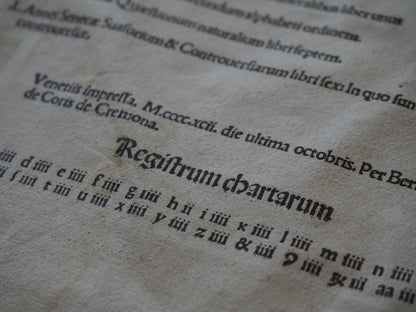 secundum alphabeti ordinem.
Quæstionum naturalium libri septem.
L. Annei Senecæ Suasorium & Controuersiarum libri sex: In quo sunt
controuersiæ.
Venetiis impressa. M.cccc.xcii. die ultima octobris. Per Ber
de Coris de Cremona.
Registrum chartarum
iiii d iiii e iiii f iiii g iiii h ii i iiii k iiii l iiii m iiii n iiii
ſ iiii t iiii u iiii x iiii y iiii z iiii & iiii ꝯ iiii ꝝ iiii aa iiii